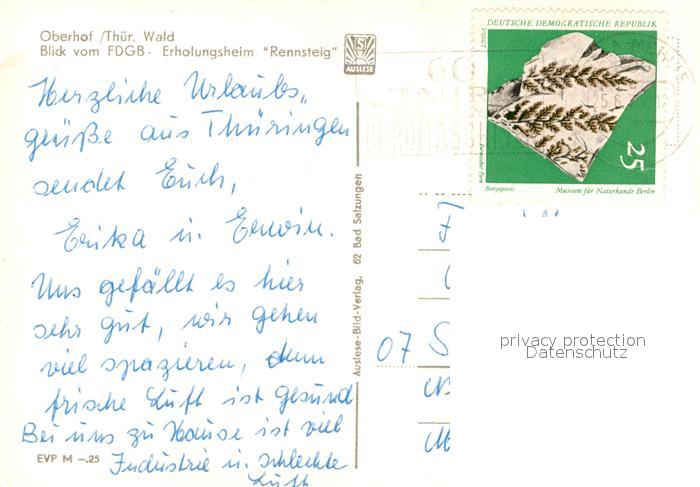 Oberhof /Thür. Wald
Blick vom FDGB - Erholungsheim "Rennsteig"
AUSLESE
Herzliche Urlaubs„
grüße aus Thüringen
sendet Euch,
Erika u. Erwin.
Uns gefällt es hier
sehr gut, wir gehen
viel spazieren, denn
frische Luft ist gesund
Bei uns zu Hause ist viel
Industrie u. schlechte
Luft
EVP M -.25
Auslese-Bild-Verlag, 62 Bad Salzungen
DEUTSCHE DEMOKRATISCHE REPUBLIK
VOIGT
25
Botryopteris
Museum für Naturkunde Berlin
60
BÜROMASCH
07 S
privacy protection
Datenschutz